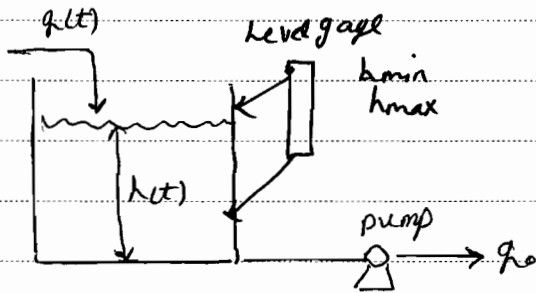 q(t)
Level gage
hmin
hmax
h(t)
pump
q₀